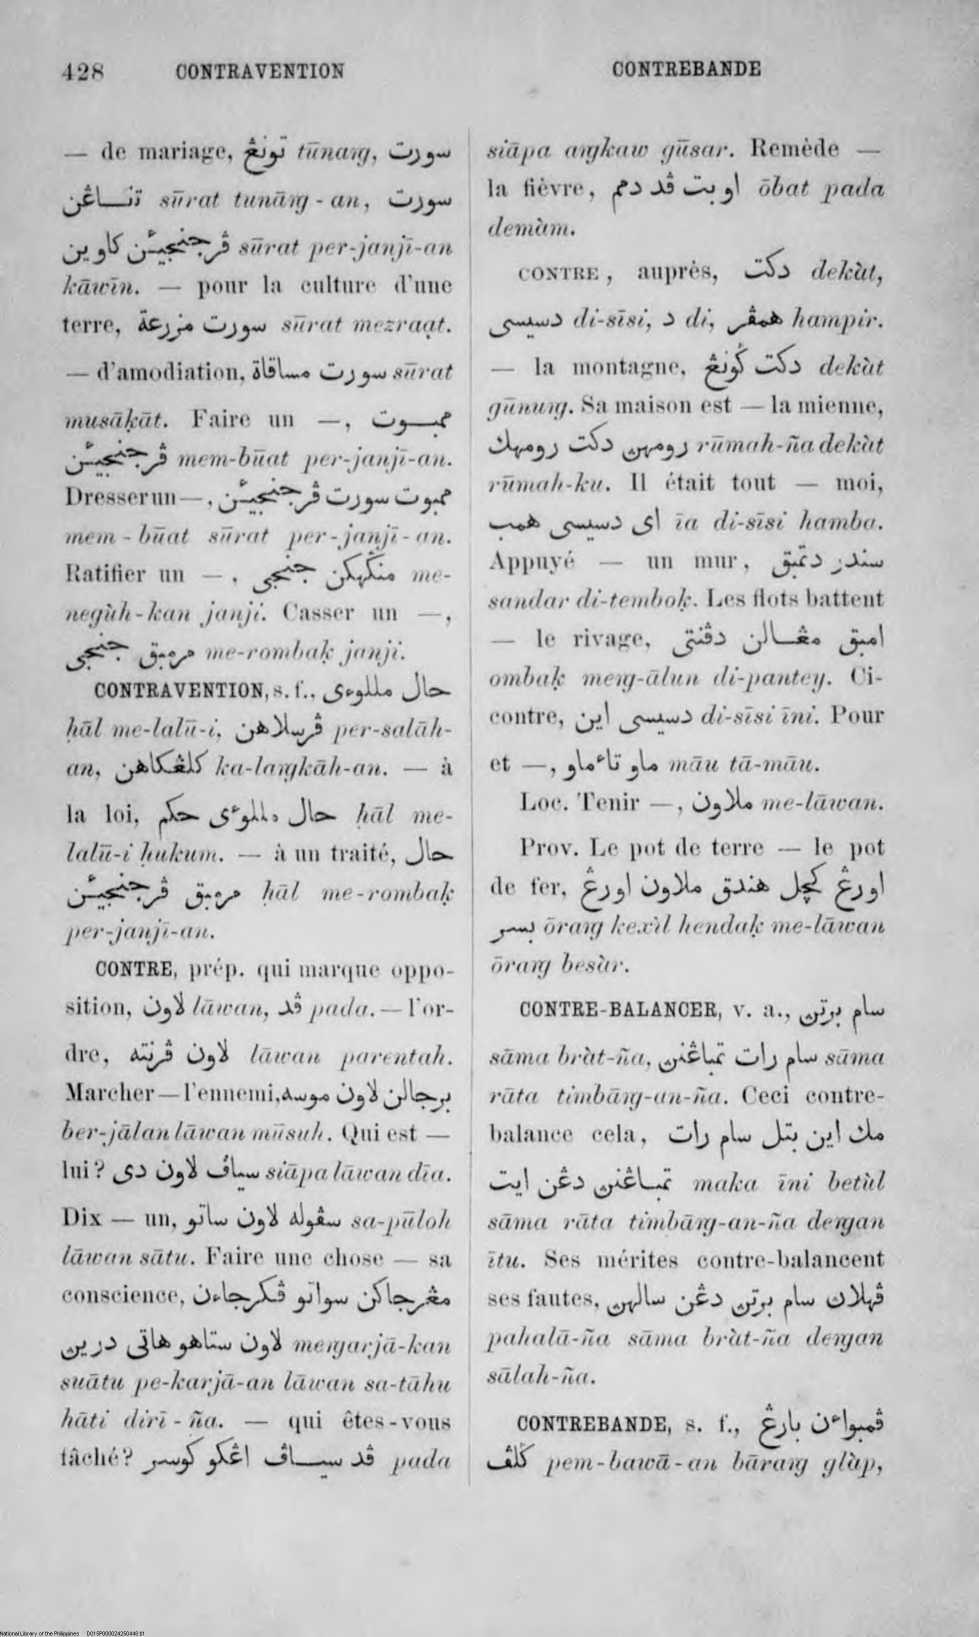 428 CONTRAVENTION CONTREBANDE
— de mariage, سورت تونڠ tūnaŋg,
سورت تناڠن sūrat tunāŋg-an,
ڤرجنجيئن كاوين sūrat per-janjī-an
kāwīn. — pour la culture d'une
terre, سورت مزرعة sūrat mezraạt.
— d'amodiation, سورت مساقاة sūrat
musāḳāt. Faire un —, ممبوت
ڤرجنجيئن mem-būat per-janjī-an.
Dresser un —, ممبوت سورت ڤرجنجيئن
mem-būat sūrat per-janjī-an.
Ratifier un —, منگهكن جنجي me-
negùh-kan janji. Casser un —,
مرمبق جنجي me-rombaḳ janji.
CONTRAVENTION, s. f., حال مللوءى
ḥāl me-lalū-i, ڤرسلاهن per-salāh-
an, كلڠكاهن ka-laŋgkāh-an. — à
la loi, حال مللوءى حكم ḥāl me-
lalū-i ḥukum. — à un traité, حال
مرمبق ڤرجنجيئن ḥāl me-rombaḳ
per-janjī-an.
CONTRE, prép. qui marque oppo-
sition, لاون lāwan, ڤد pada. — l'or-
dre, لاون ڤرنته lāwan parentah.
Marcher — l'ennemi, برجالن لاون موسه
ber-jālan lāwan mūsuh. Qui est —
lui? سياڤ لاون دى siāpa lāwan dīa.
Dix — un, سڤوله لاون ساتو sa-pūloh
lāwan sātu. Faire une chose — sa
conscience, مڠرجاكن سواتو ڤكرجاءن
لاون ستاهو هاتى درين meŋgarjā-kan
suātu pe-karjā-an lāwan sa-tāhu
hāti dirī-ña. — qui êtes-vous
tâché? ڤد سياڤ اڠكو گوسر pada
siāpa aŋgkaw gūsar. Remède —
la fièvre, اوبت ڤد دمم ōbat pada
demàm.
CONTRE, auprès, دكت dekàt,
دسيسى di-sīsi, د di, همڤر hampir.
— la montagne, دكت گونڠ dekàt
gūnuŋg. Sa maison est — la mienne,
رومهن دكت رومهك rūmah-ña dekàt
rūmah-ku. Il était tout — moi,
اى دسيسى همب īa di-sīsi hamba.
Appuyé — un mur, سندر دتمبق
sandar di-temboḳ. Les flots battent
— le rivage, امبق مڠالن دڤنتى
ombaḳ meŋg-ālun di-pantey. Ci-
contre, دسيسى اين di-sīsi īni. Pour
et —, ماو تاءماو māu tā-māu.
Loc. Tenir —, ملاون me-lāwan.
Prov. Le pot de terre — le pot
de fer, اورڠ كچل هندق ملاون اورڠ
بسر ōraŋg kexìl hendaḳ me-lāwan
ōraŋg besàr.
CONTRE-BALANCER, v. a., سام برتن
sāma bràt-ña, سام رات تمباڠنن sāma
rāta timbāŋg-an-ña. Ceci contre-
balance cela, مك اين بتل سام رات
تمباڠنن دڠن ايت maka īni betùl
sāma rāta timbāŋg-an-ña deŋgan
ītu. Ses mérites contre-balancent
ses fautes, ڤهلان سام برتن دڠن سالهن
pahalā-ña sāma bràt-ña deŋgan
sālah-ña.
CONTREBANDE, s. f., ڤمبواءن بارڠ
گلڤ pem-bawā-an bāraŋg glàp,
National Library of the Philippines